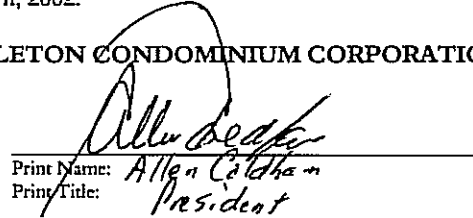 2002.
LETON CONDOMINIUM CORPORATIO
Print Name: Allen
Print Title: President